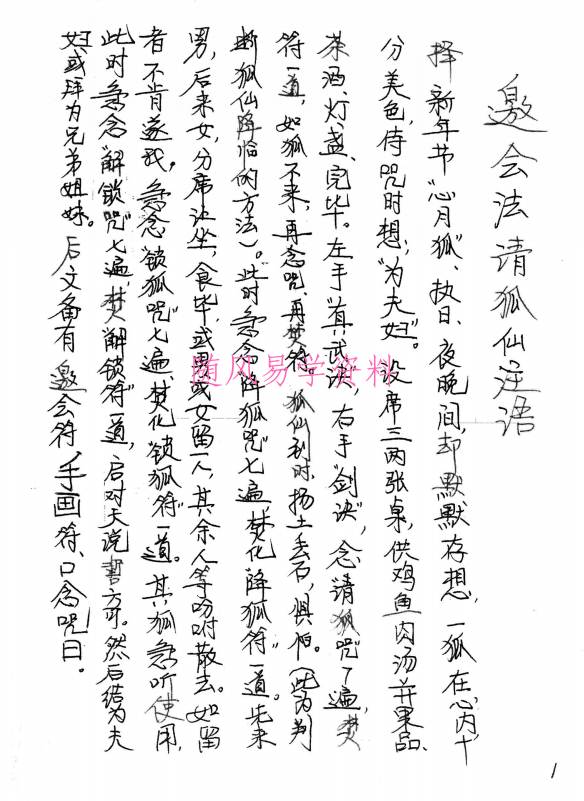 邀会法请狐仙注语
择新年节“心月狐”、执日、夜晚间，却默默存想，一狐在心内，十
分美色，侍咒时想：“为夫妇”。设席三两张桌，供鸡鱼肉汤并果品、
茶酒、灯、盏、完毕。左手“真武诀”，右手“剑诀”，念请狐咒7遍，焚
符一道，如狐不来，再念咒、再焚符。狐仙到时，扬土丢石，惧怕。（此为判
断狐仙降临的方法）。此时急念“降狐咒”七遍，焚化“降狐符”一道。先来
男，后来女，分席边坐，食毕，或男或女留一人，其余人等吩咐散去。如留
者不肯遂我，急念“锁狐咒”七遍，焚化“锁狐符”一道。其狐急听使用，
此时急念“解锁咒”七遍，焚“解锁符”一道，启对天说誓方可。然后结为夫
妇或拜为兄弟姐妹。后文备有邀会符，手画符、口念咒曰。
随风易学资料
1